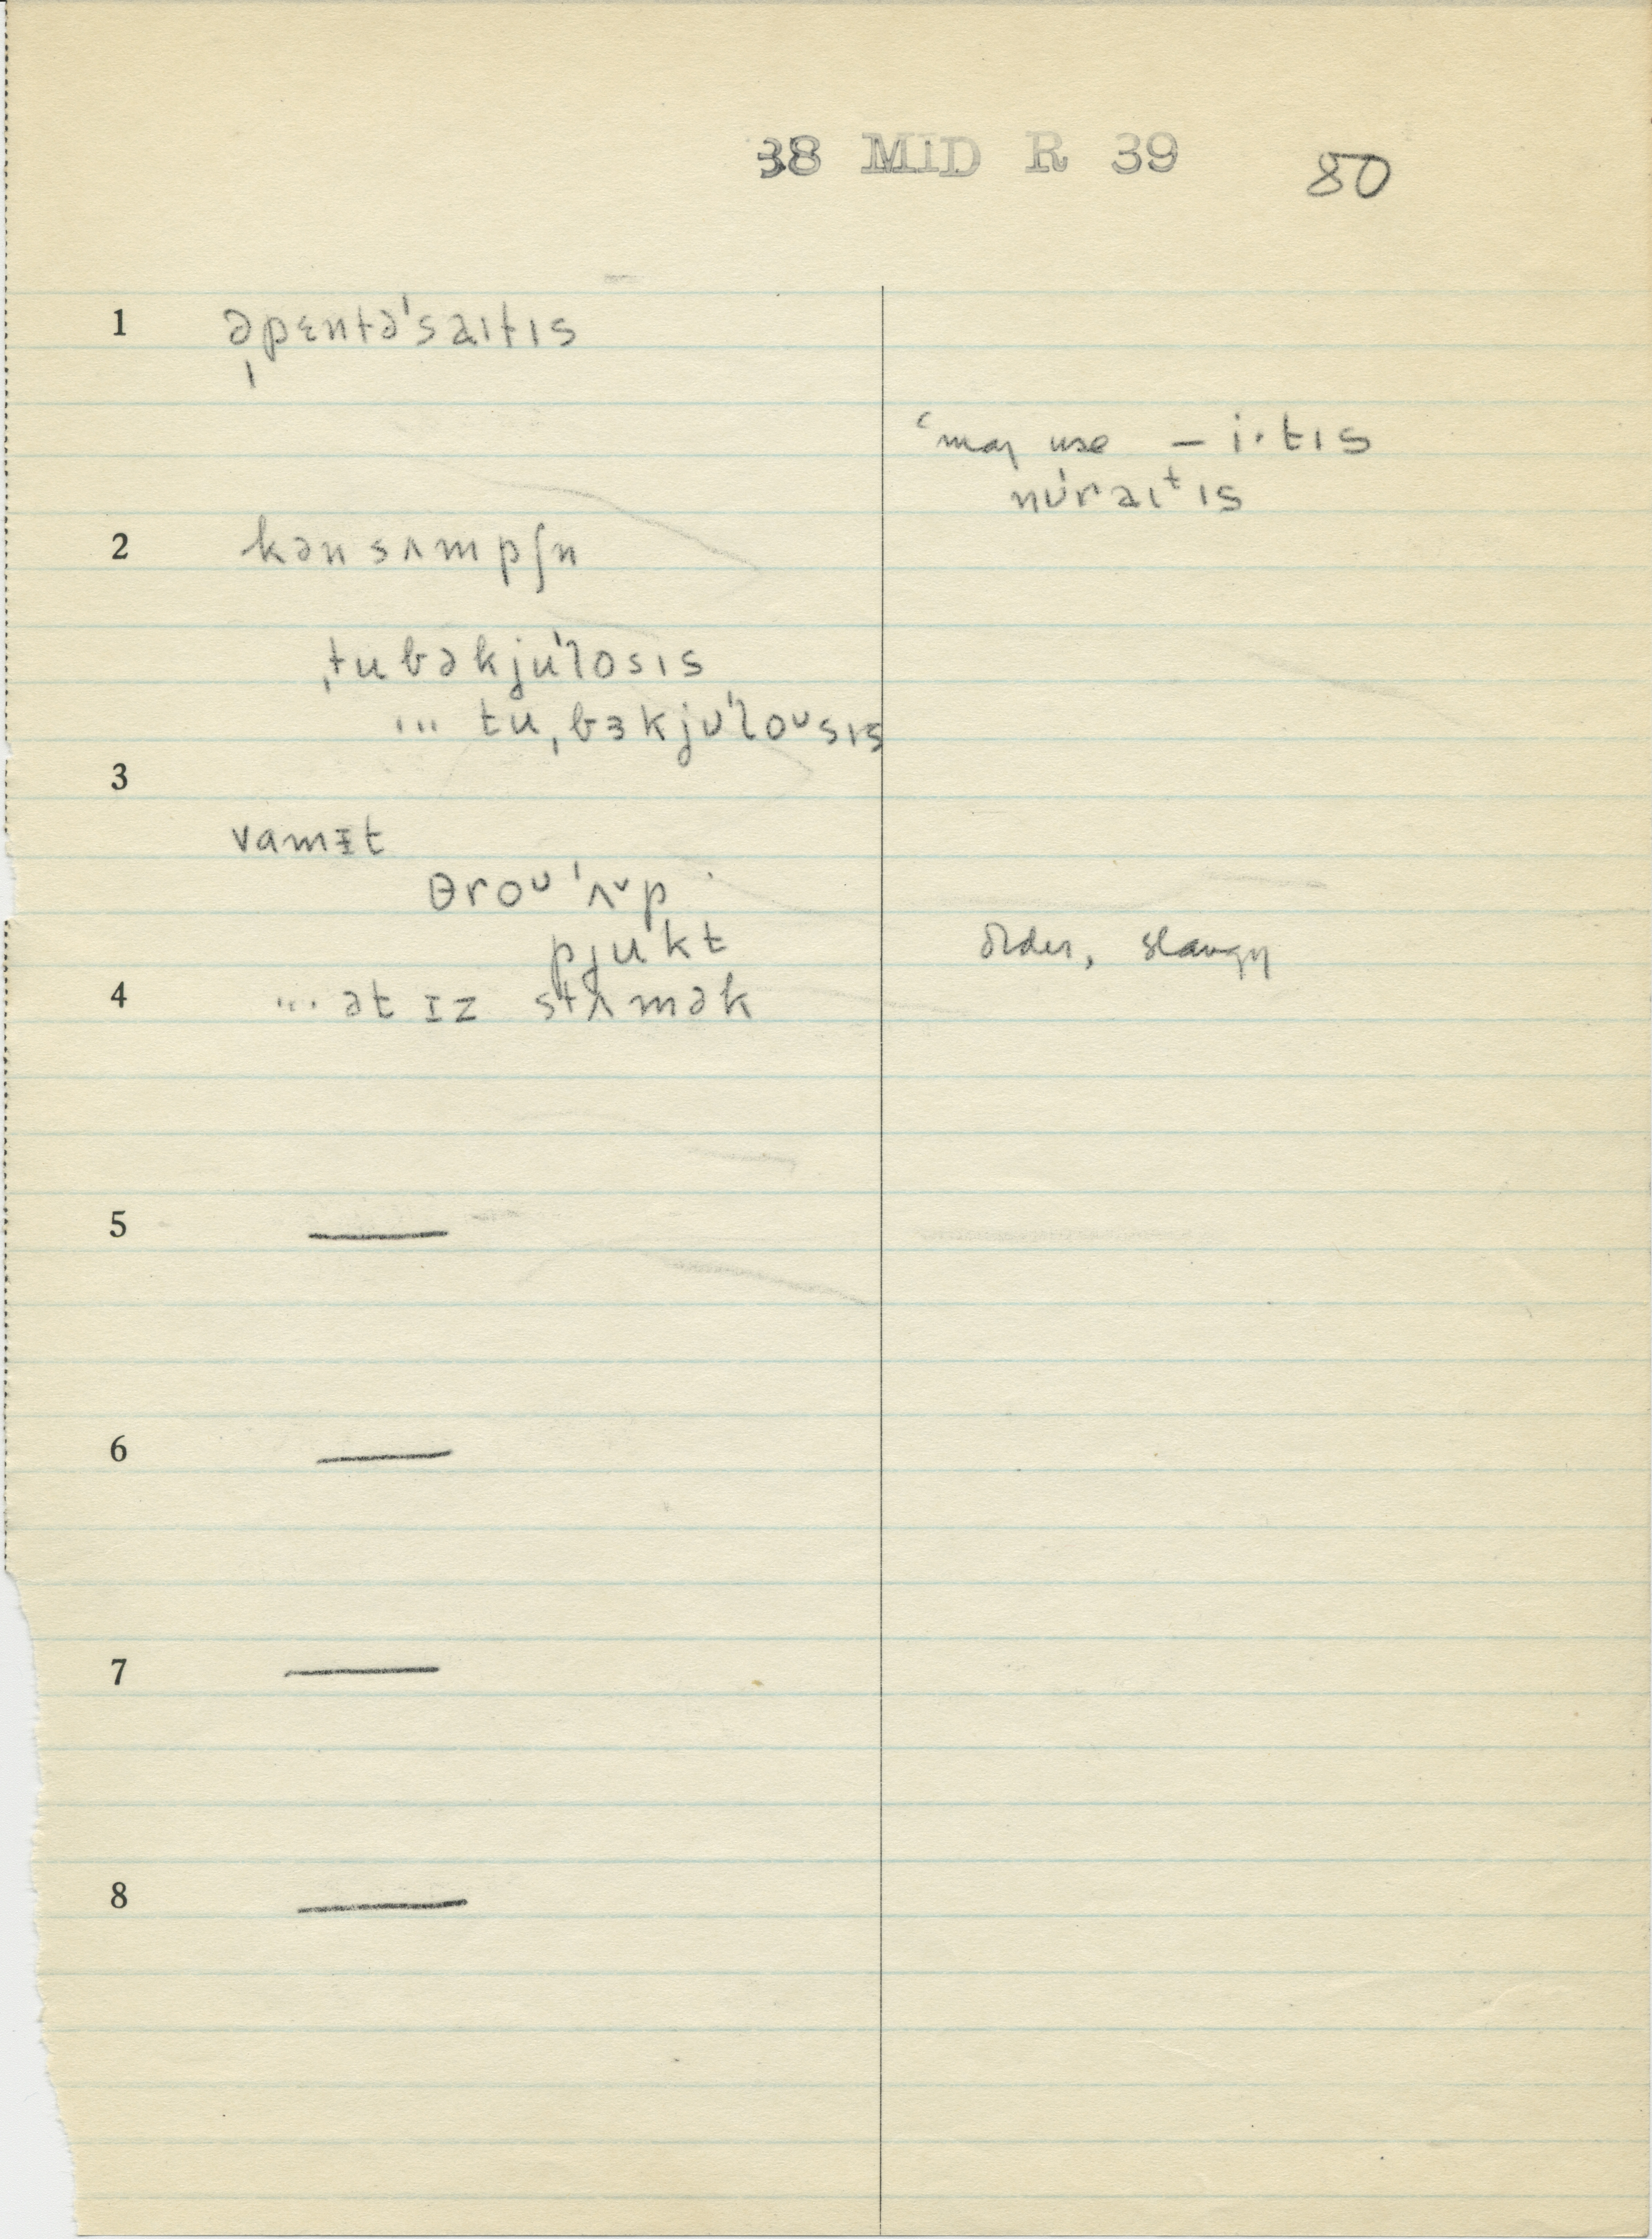 38 MID R 39 80
1 ˌəpɛntəˈsaɪtɪs
ˁmay use – i·tɪs
nʊ́raɪᵗɪs
2 kənsʌmpʃn
ˌtubəkjuˈlosɪs
... tuˌbɜkjʊˈloᴜsɪs
3
vamɪt
θroᴜˈʌᵛp
pjukt older, slangy
4 ... ət ɪz stʌmək
5 —
6 —
7 —
8 —